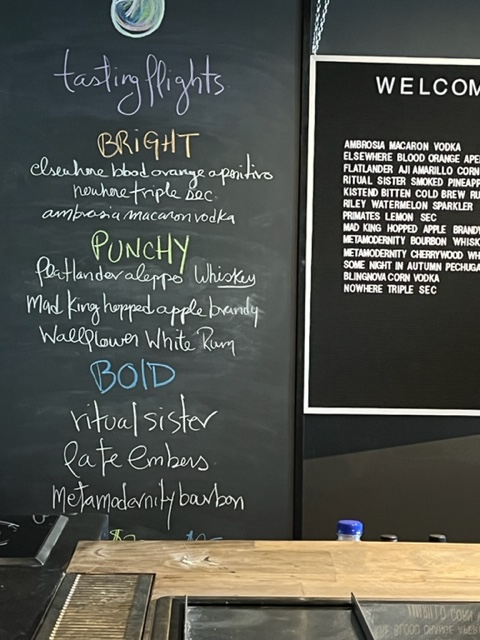 tasting flights
BRIGHT
elsewhere blood orange aperitivo
nowhere triple sec
ambrosia macaron vodka
PUNCHY
flatlander aleppo Whiskey
Mad King hopped apple brandy
Wallflower White Rum
BOLD
ritual sister
late embers
Metamodernity bourbon
WELCOM
AMBROSIA MACARON VODKA
ELSEWHERE BLOOD ORANGE APE
FLATLANDER AJI AMARILLO CORN
RITUAL SISTER SMOKED PINEAPP
KISTEND BITTEN COLD BREW RU
RILEY WATERMELON SPARKLER
PRIMATES LEMON SEC
MAD KING HOPPED APPLE BRANDY
METAMODERNITY BOURBON WHISK
METAMODERNITY CHERRYWOOD WH
SOME NIGHT IN AUTUMN PECHUGA
BLINGNOVA CORN VODKA
NOWHERE TRIPLE SEC